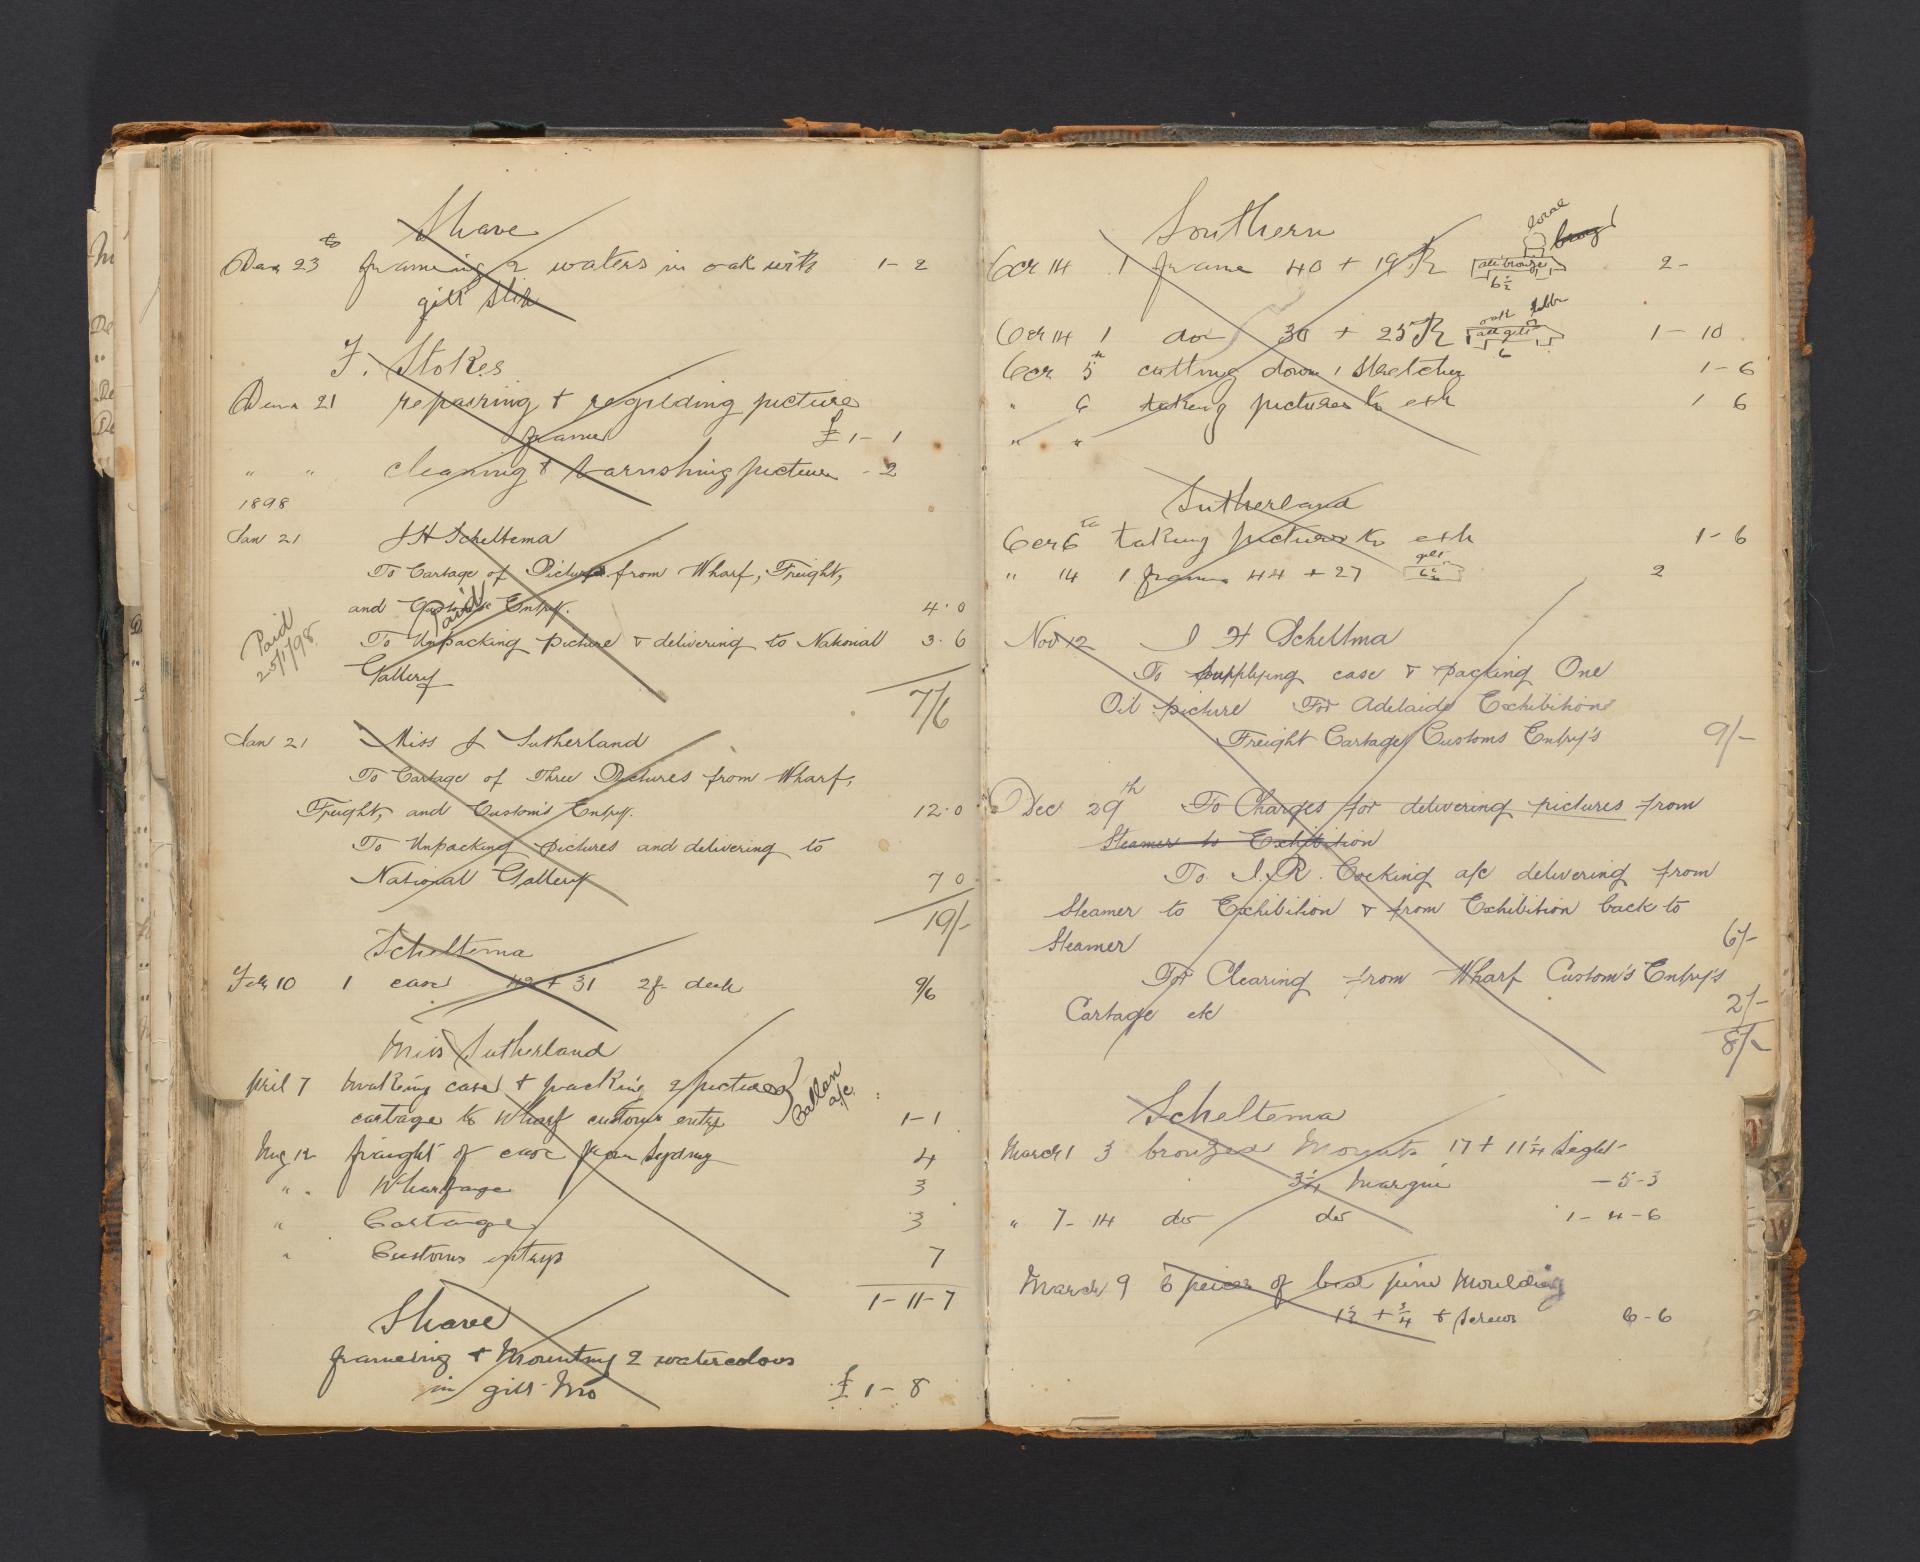 Shave
23 frameing 2 waters in oak with 1-2
gilt slip
F. Stokes
21 repairing + regilding picture
frame £1-1
" " cleaning & varnishing picture - 2
1898
Jan 21 J H Scheltema
To Cartage of Picture from Wharf, Freight,
and Customs Entry. 4.0
Paid
Paid 25/1/98
To Unpacking picture & delivering to National 3.6
Gallery
7/6
Jan 21 Miss J Sutherland
To Cartage of Three Pictures from Wharf,
Freight, and Custom's Entry. 12.0
To Unpacking pictures and delivering to
National Gallery 7 0
19/-
Scheltema
Feb 10 1 case 42 + 31 2f deck 9/6
Miss Sutherland
pril 7 making case & packing 2 pictures
cartage to Wharf customs entry 1-1
a/c
Aug 12 fraight of case from Sydney 4
" " Wharfage 3
" Cartage 3
" Customs entrys 7
1-11-7
Shave
frameing + Mounting 2 watercolours
in gilt Mo £1-8
Southern
Oct 14 1 frame 40 + 19 all bronze 6½ 2-
Oct 14 1 do 30 + 25 all gilt 6 1-10
Oct 5th cutting down 1 stretcher 1-6
" 6 taking pictures to exh 1 6
" "
Sutherland
Oct 6th taking pictures to exh 1-6
" 14 1 frame 44 + 27 gilt 2
Nov 12 J H Scheltma
To supplying case & packing One
Oil picture For Adelaide Exhibition
Freight Cartage Customs Entry's 9/-
Dec 29th To Charges for delivering pictures from
Steamer to Exhibition
To J. R. Cocking a/c delivering from
Steamer to Exhibition & from Exhibition back to
Steamer 6/-
For Clearing from Wharf Custom's Entry's
Cartage etc 2/-
8/-
Scheltema
March 1 3 bronzed Mounts 17 + 11¼ sight
3¼ Margin - 5-3
" 7- 14 do do 1-4-6
March 9 6 peices of bead pine Moulding
1½ + ¾ & screws 6-6